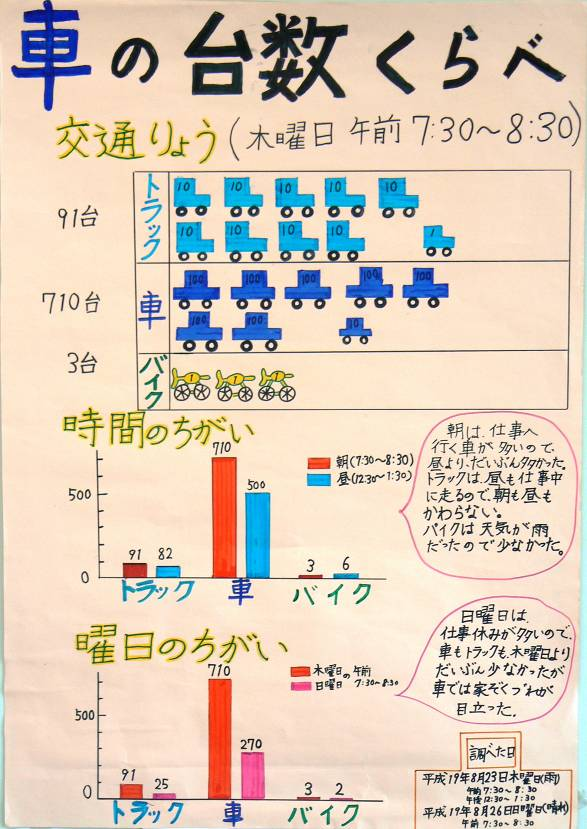 車の台数くらべ
交通りょう(木曜日 午前 7:30〜8:30)
91台
トラック
10 10 10 10 10
10 10 10 10 1
710台
車
100 100 100 100 100
100 100 10
3台
バイク
1 1 1
時間のちがい
710
朝(7:30〜8:30)
昼(12:30〜1:30)
500
500
91 82
3 6
0
トラック 車 バイク
朝は、仕事へ
行く車が多いので、
昼より、だいぶん多かった。
トラックは、昼も仕事中
に走るので、朝も昼も
かわらない。
バイクは天気が雨
だったので少なかった。
曜日のちがい
710
木曜日の午前
日曜日 7:30〜8:30
500
270
91 25
3 2
0
トラック 車 バイク
日曜日は、
仕事休みが多いので、
車もトラックも、木曜日より
だいぶん少なかったが
車では家ぞくづれが
目立った。
調べた日
平成19年8月23日木曜日(雨)
午前7:30〜8:30
午後12:30〜1:30
平成19年8月26日日曜日(晴れ)
午前7:30〜8:30